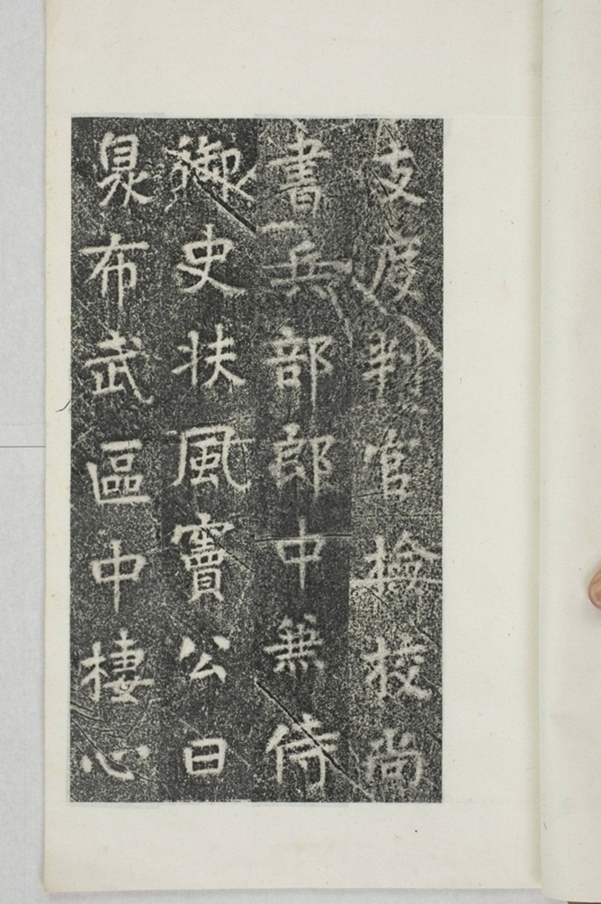 支度判官檢挍尚
書兵部郎中兼侍
御史扶風竇公曰
臮布武區中棲心